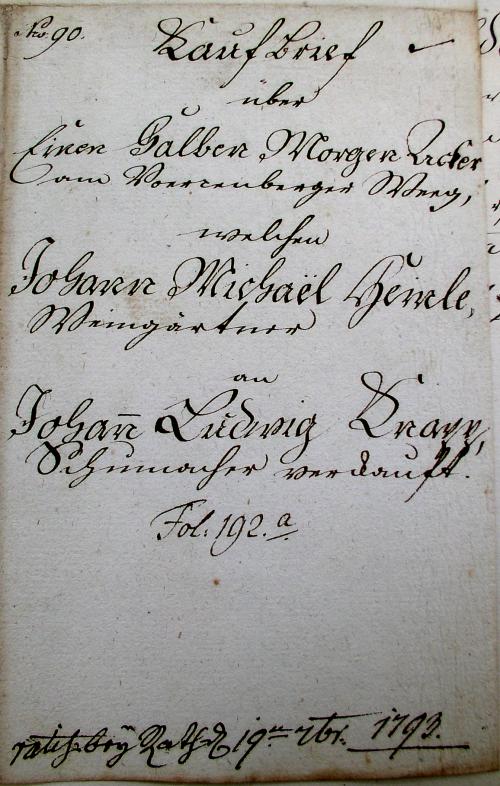 No. 90. Kauf Brief
über
Einen Halben Morgen Acker
am Voerrenberger Weeg,
welchen
Johann Michaël Heinle,
Weingärtner
an
Johañ Ludwig Knapp,
Schumacher verkauft.
Fol: 192.a
bey Rath d 19ten 7br. 1793.